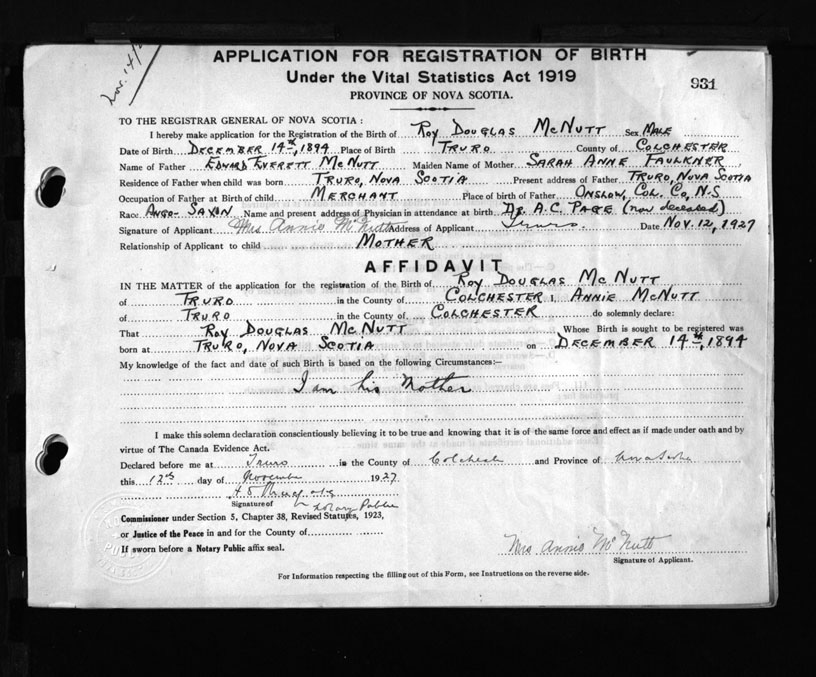 Nov. 14/2
APPLICATION FOR REGISTRATION OF BIRTH
Under the Vital Statistics Act 1919
931
PROVINCE OF NOVA SCOTIA.
TO THE REGISTRAR GENERAL OF NOVA SCOTIA:
I hereby make application for the Registration of the Birth of Roy Douglas McNutt Sex Male
Date of Birth December 14th, 1894 Place of Birth Truro County of Colchester
Name of Father Edward Everett McNutt Maiden Name of Mother Sarah Anne Faulkner
Residence of Father when child was born Truro, Nova Scotia Present address of Father Truro, Nova Scotia
Occupation of Father at Birth of child Merchant Place of birth of Father Onslow, Col. Co, N.S
Race Ango-Saxon Name and present address of Physician in attendance at birth Dr. A.C. Page (now deceased)
Signature of Applicant Mrs Annie McNutt Address of Applicant Truro. Date Nov. 12, 1927
Relationship of Applicant to child Mother
AFFIDAVIT
IN THE MATTER of the application for the registration of the Birth of Roy Douglas McNutt
of Truro in the County of Colchester I, Annie McNutt
of Truro in the County of Colchester do solemnly declare:
That Roy Douglas McNutt Whose Birth is sought to be registered was
born at Truro, Nova Scotia on December 14th, 1894
My knowledge of the fact and date of such Birth is based on the following Circumstances:—
I am his Mother
I make this solemn declaration conscientiously believing it to be true and knowing that it is of the same force and effect as if made under oath and by
virtue of The Canada Evidence Act.
Declared before me at Truro in the County of Colchester and Province of Nova Scotia
this 12th day of November 1927
Signature of Notary Public
Commissioner under Section 5, Chapter 38, Revised Statutes, 1923,
or Justice of the Peace in and for the County of
If sworn before a Notary Public affix seal.
Mrs Annie McNutt
Signature of Applicant.
For Information respecting the filling out of this Form, see Instructions on the reverse side.